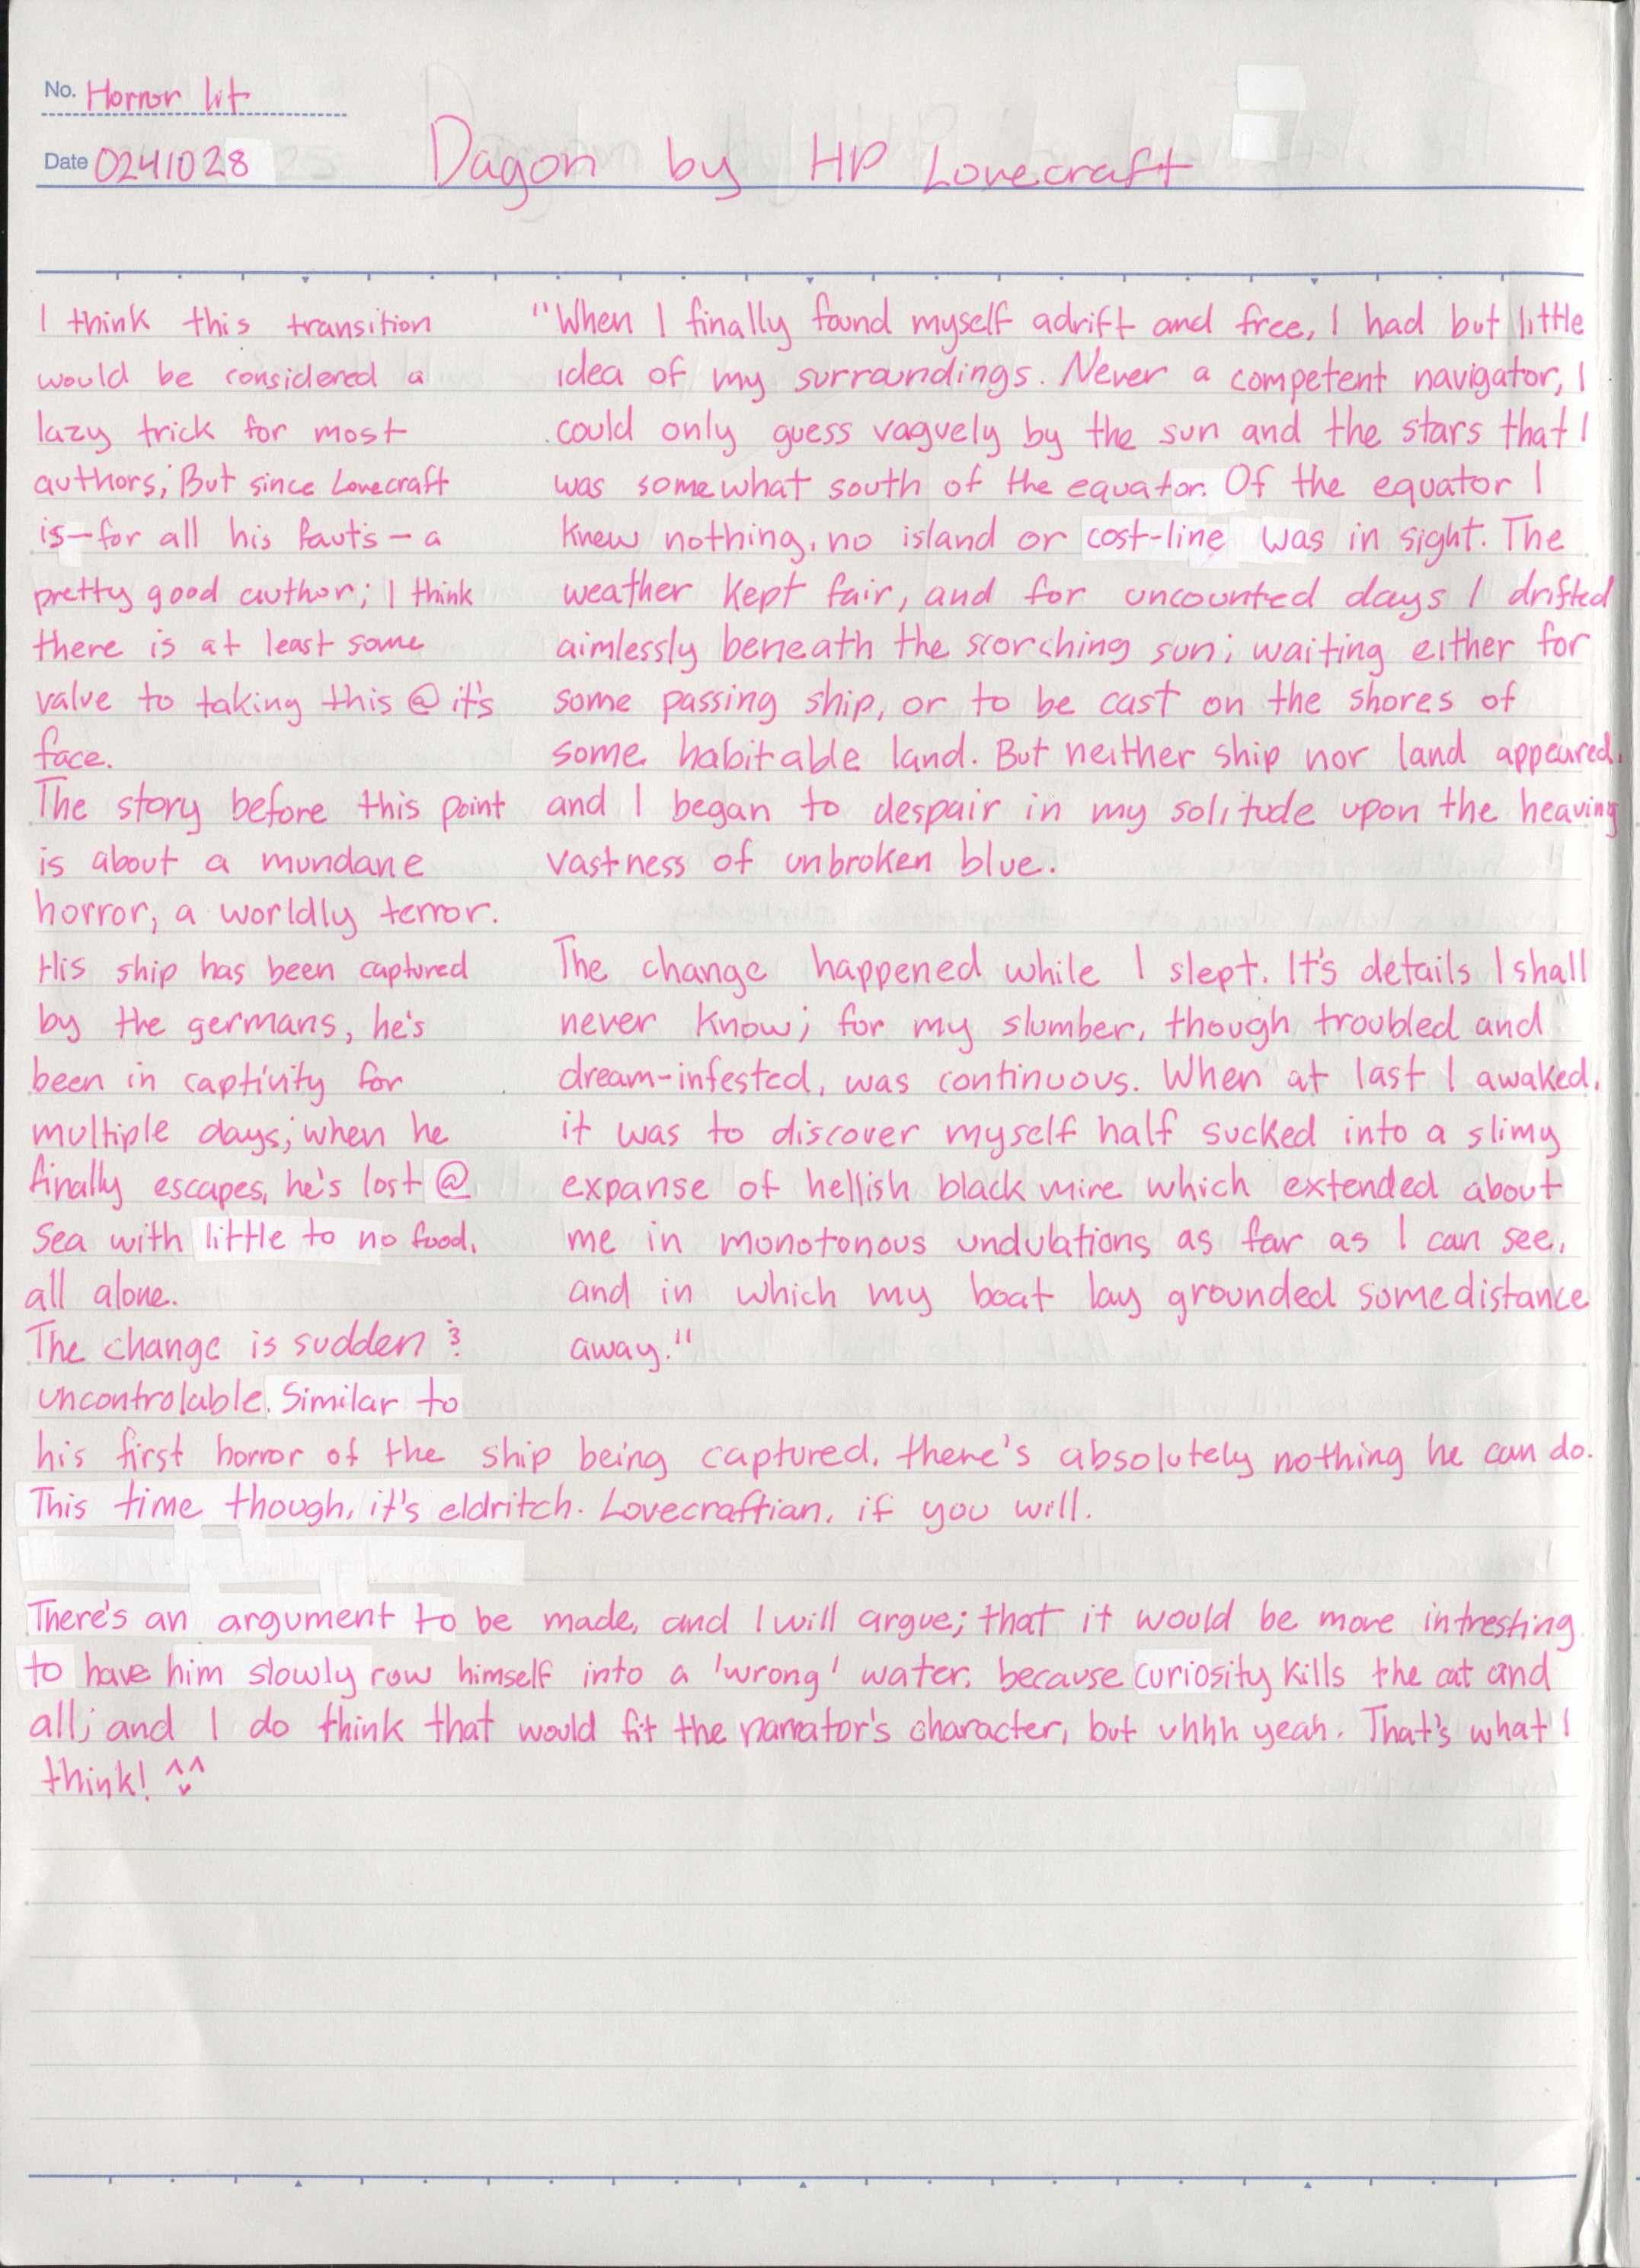 No. Horror lit
Date 0241028
Dagon by HP Lovecraft
I think this transition
would be considered a
lazy trick for most
authors; But since Lovecraft
is—for all his fauts— a
pretty good author; I think
there is at least some
value to taking this @ it's
face.
The story before this point
is about a mundane
horror, a worldly terror.
His ship has been captured
by the germans, he's
been in captivity for
multiple days; when he
finally escapes, he's lost @
Sea with little to no food,
all alone.
The change is sudden &
uncontrolable. Similar to
his first horror of the ship being captured, there's absolutely nothing he can do.
This time though, it's eldritch. Lovecraftian, if you will.
"When I finally found myself adrift and free, I had but little
idea of my surroundings. Never a competent navigator, I
could only guess vaguely by the sun and the stars that I
was somewhat south of the equator. Of the equator I
knew nothing, no island or cost-line was in sight. The
weather kept fair, and for uncounted days I drifted
aimlessly beneath the scorching sun; waiting either for
some passing ship, or to be cast on the shores of
some habitable land. But neither ship nor land appeared,
and I began to despair in my solitude upon the heaving
vastness of unbroken blue.
The change happened while I slept. It's details I shall
never know; for my slumber, though troubled and
dream-infested, was continuous. When at last I awaked,
it was to discover myself half sucked into a slimy
expanse of hellish black mire which extended about
me in monotonous undulations as far as I can see,
and in which my boat lay grounded some distance
away."
There's an argument to be made, and I will argue; that it would be more intresting
to have him slowly row himself into a 'wrong' water, because curiosity kills the cat and
all; and I do think that would fit the narrator's character, but uhhh yeah. That's what I
think! ^v^